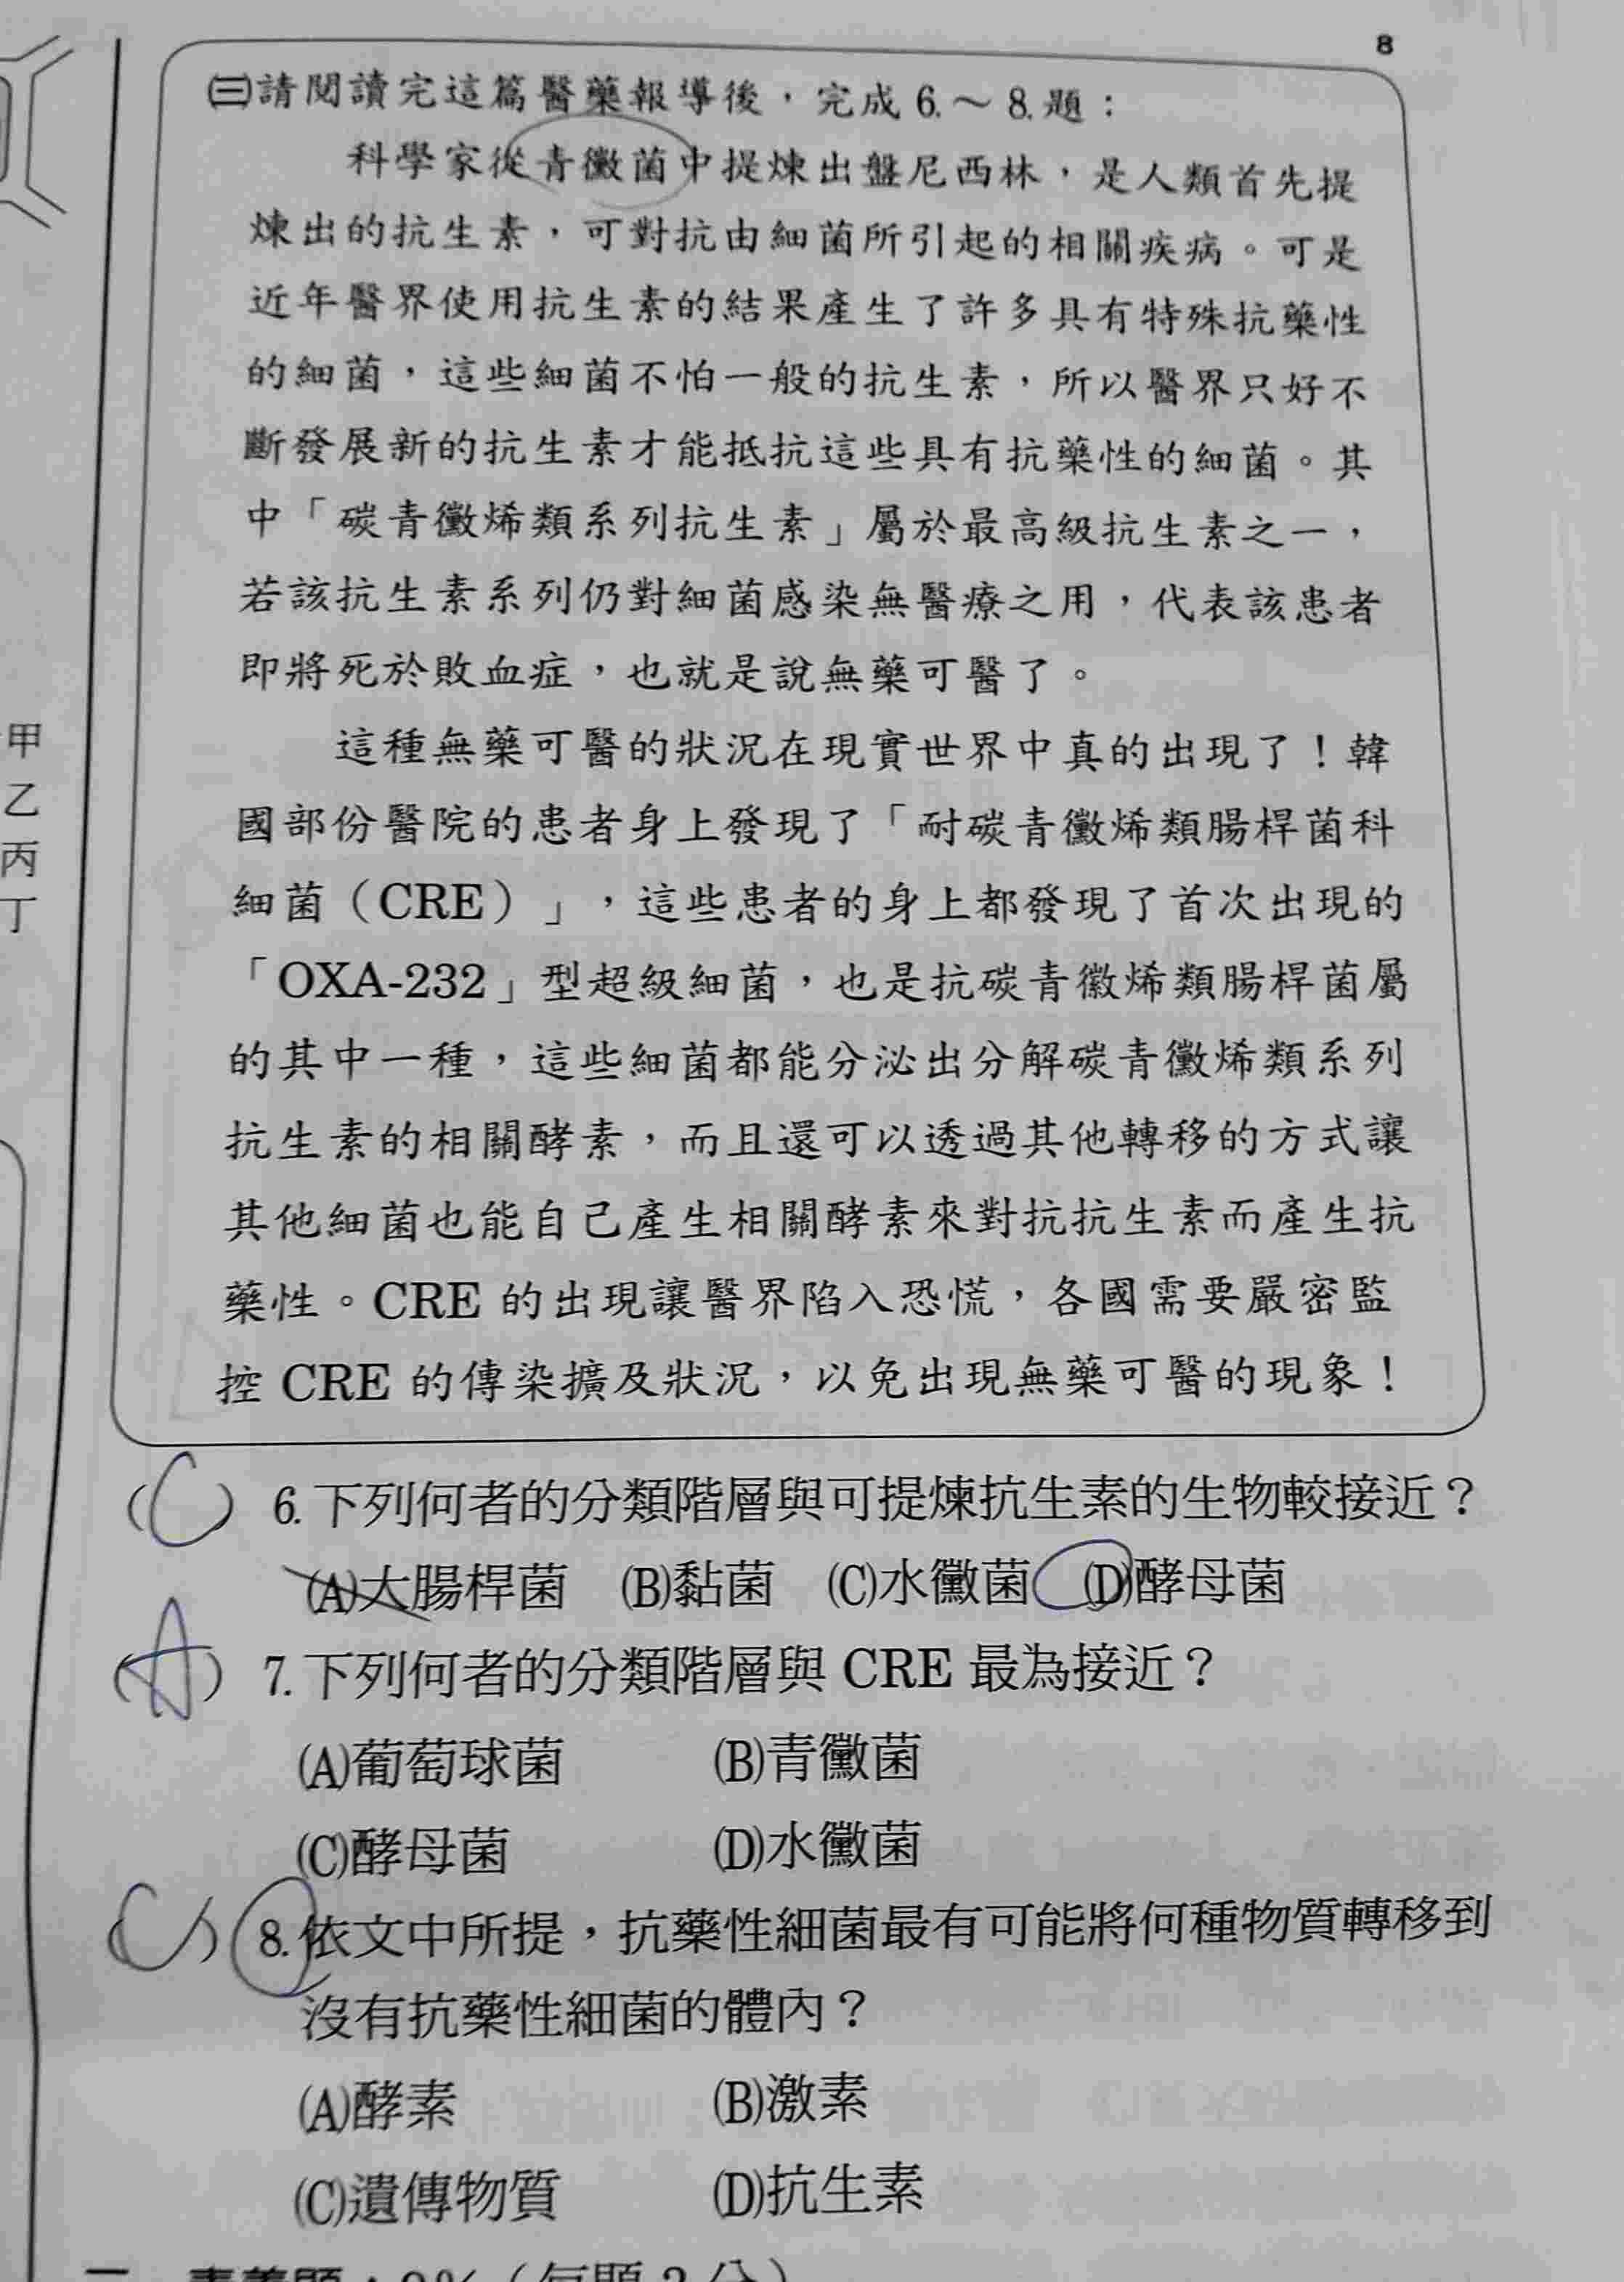 8
㈢請閱讀完這篇醫藥報導後，完成6.～8.題：
科學家從青黴菌中提煉出盤尼西林，是人類首先提
煉出的抗生素，可對抗由細菌所引起的相關疾病。可是
近年醫界使用抗生素的結果產生了許多具有特殊抗藥性
的細菌，這些細菌不怕一般的抗生素，所以醫界只好不
斷發展新的抗生素才能抵抗這些具有抗藥性的細菌。其
中「碳青黴烯類系列抗生素」屬於最高級抗生素之一，
若該抗生素系列仍對細菌感染無醫療之用，代表該患者
即將死於敗血症，也就是說無藥可醫了。
這種無藥可醫的狀況在現實世界中真的出現了！韓
國部份醫院的患者身上發現了「耐碳青黴烯類腸桿菌科
細菌（CRE）」，這些患者的身上都發現了首次出現的
「OXA-232」型超級細菌，也是抗碳青黴烯類腸桿菌屬
的其中一種，這些細菌都能分泌出分解碳青黴烯類系列
抗生素的相關酵素，而且還可以透過其他轉移的方式讓
其他細菌也能自己產生相關酵素來對抗抗生素而產生抗
藥性。CRE 的出現讓醫界陷入恐慌，各國需要嚴密監
控 CRE 的傳染擴及狀況，以免出現無藥可醫的現象！
甲
乙
丙
丁
(C) 6.下列何者的分類階層與可提煉抗生素的生物較接近？
(A)大腸桿菌 (B)黏菌 (C)水黴菌 (D)酵母菌
(A) 7.下列何者的分類階層與 CRE 最為接近？
(A)葡萄球菌 (B)青黴菌
(C)酵母菌 (D)水黴菌
(C) 8.依文中所提，抗藥性細菌最有可能將何種物質轉移到
沒有抗藥性細菌的體內？
(A)酵素 (B)激素
(C)遺傳物質 (D)抗生素